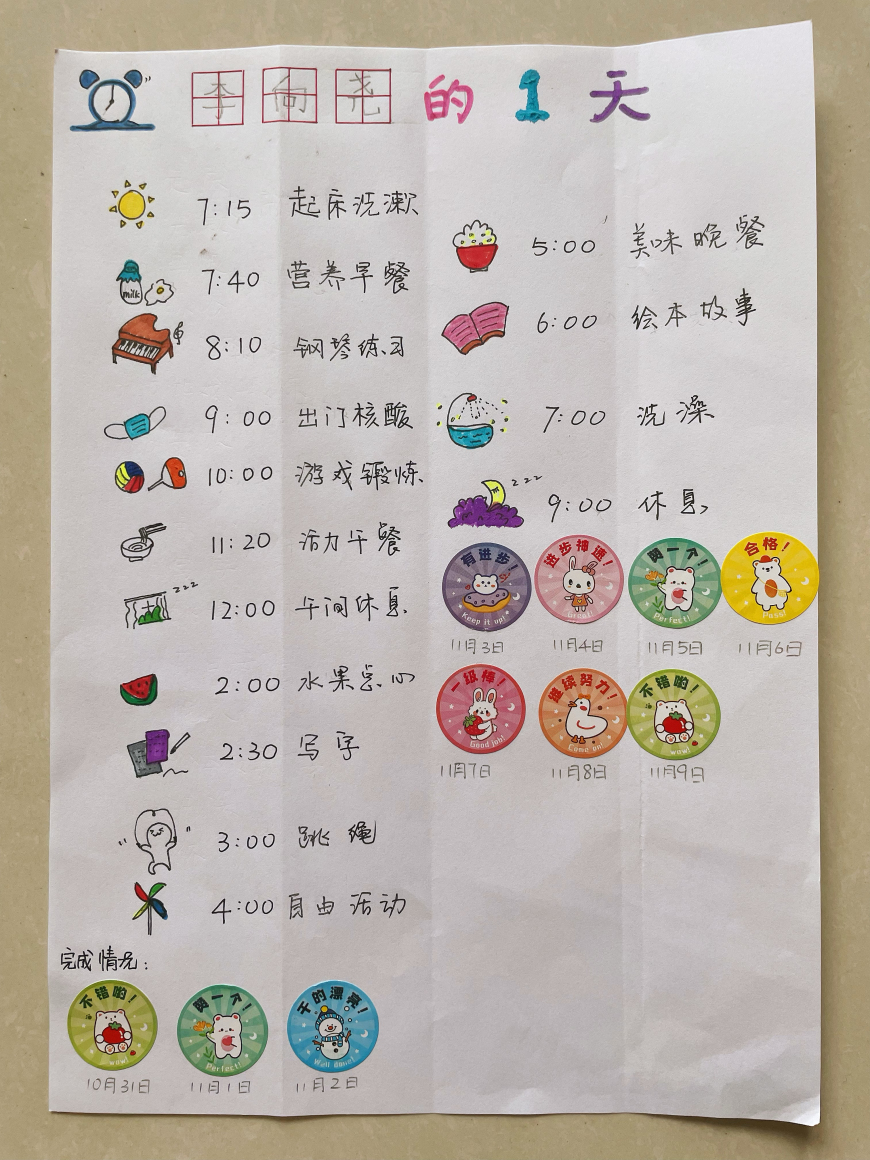 李向尧的1天
7:15 起床洗漱
milk
7:40 营养早餐
8:10 钢琴练习
9:00 出门核酸
10:00 游戏锻炼
11:20 活力午餐
zzz
12:00 午间休息
2:00 水果点心
2:30 写字
3:00 跳绳
4:00 自由活动
5:00 美味晚餐
6:00 绘本故事
7:00 洗澡
zzz
9:00 休息
有进步!
Keep it up!
11月3日
进步神速!
Great!
11月4日
闪一个!
Perfect!
11月5日
合格!
Pass!
11月6日
一级棒!
Good job!
11月7日
继续努力!
Come on!
11月8日
不错哟!
wow!
11月9日
完成情况:
不错哟!
wow!
10月31日
闪一个!
Perfect!
11月1日
干的漂亮!
Well done!
11月2日